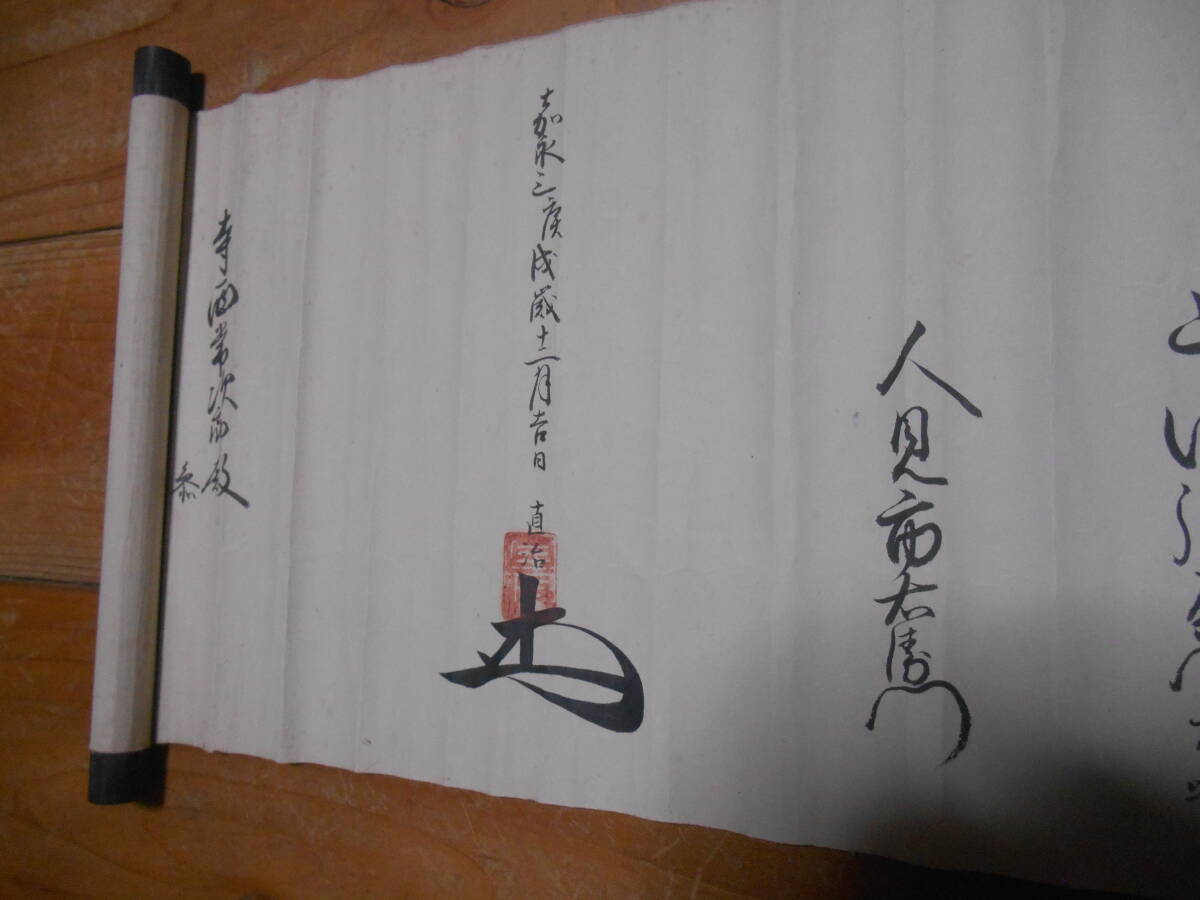 人見市右衛門
嘉永三庚戌歳十二月吉日 直治
寺西常次郎殿
参